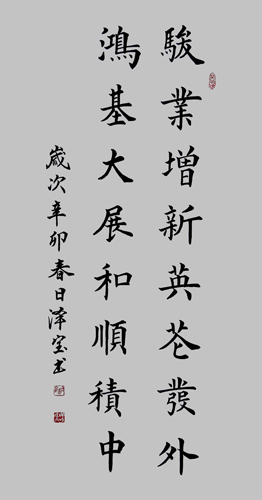 駿業增新英花發外
鴻基大展和順積中
歲次辛卯春日澤宝书